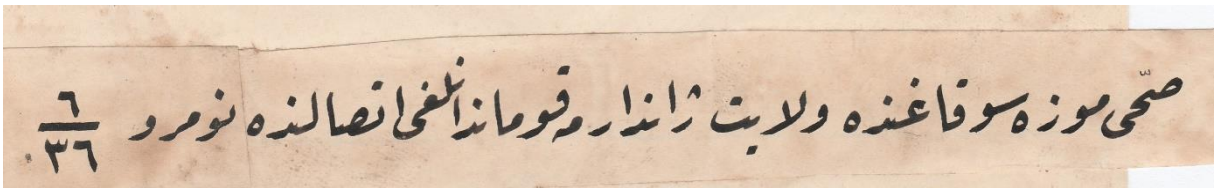 صحّی موزه سوقاغنده ولایت ژاندارمه قوماندانلغی اتصالنده نومرو ٦/٣٦